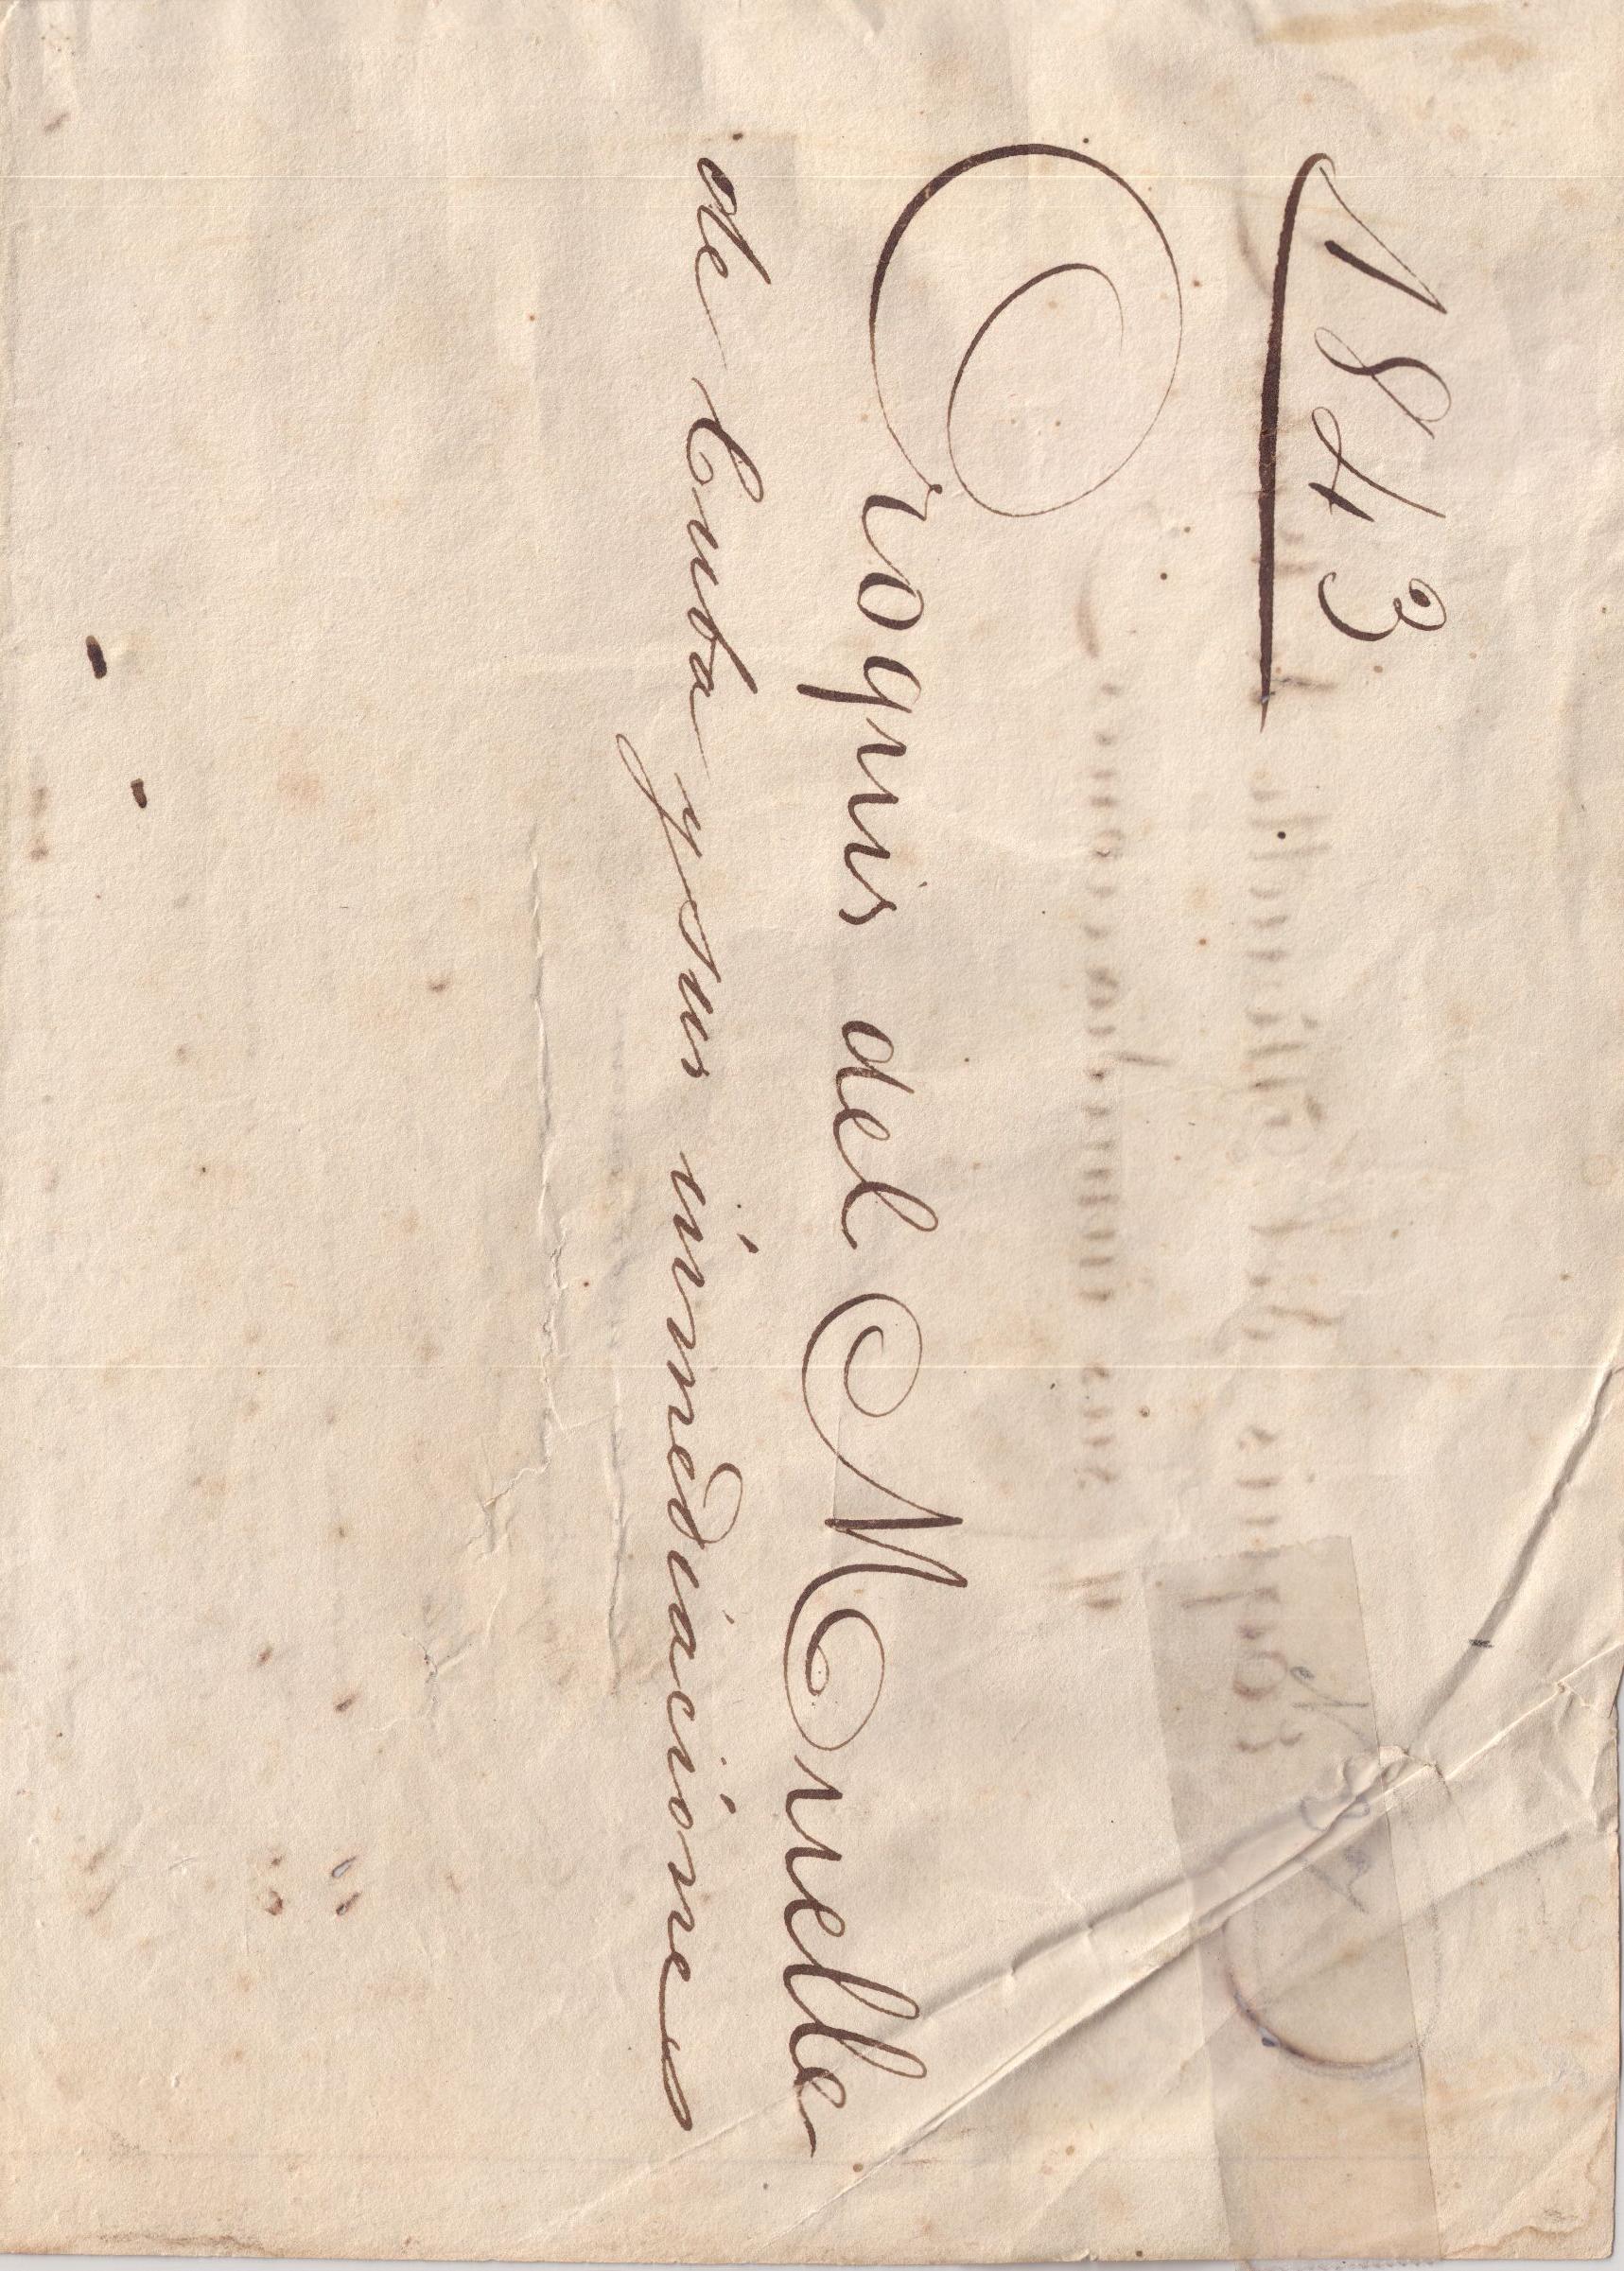 1843
Croquis del Muelle
de Cuba y sus inmediaciones